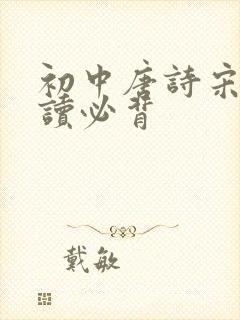 初中唐詩宋
讀必背
戴敏